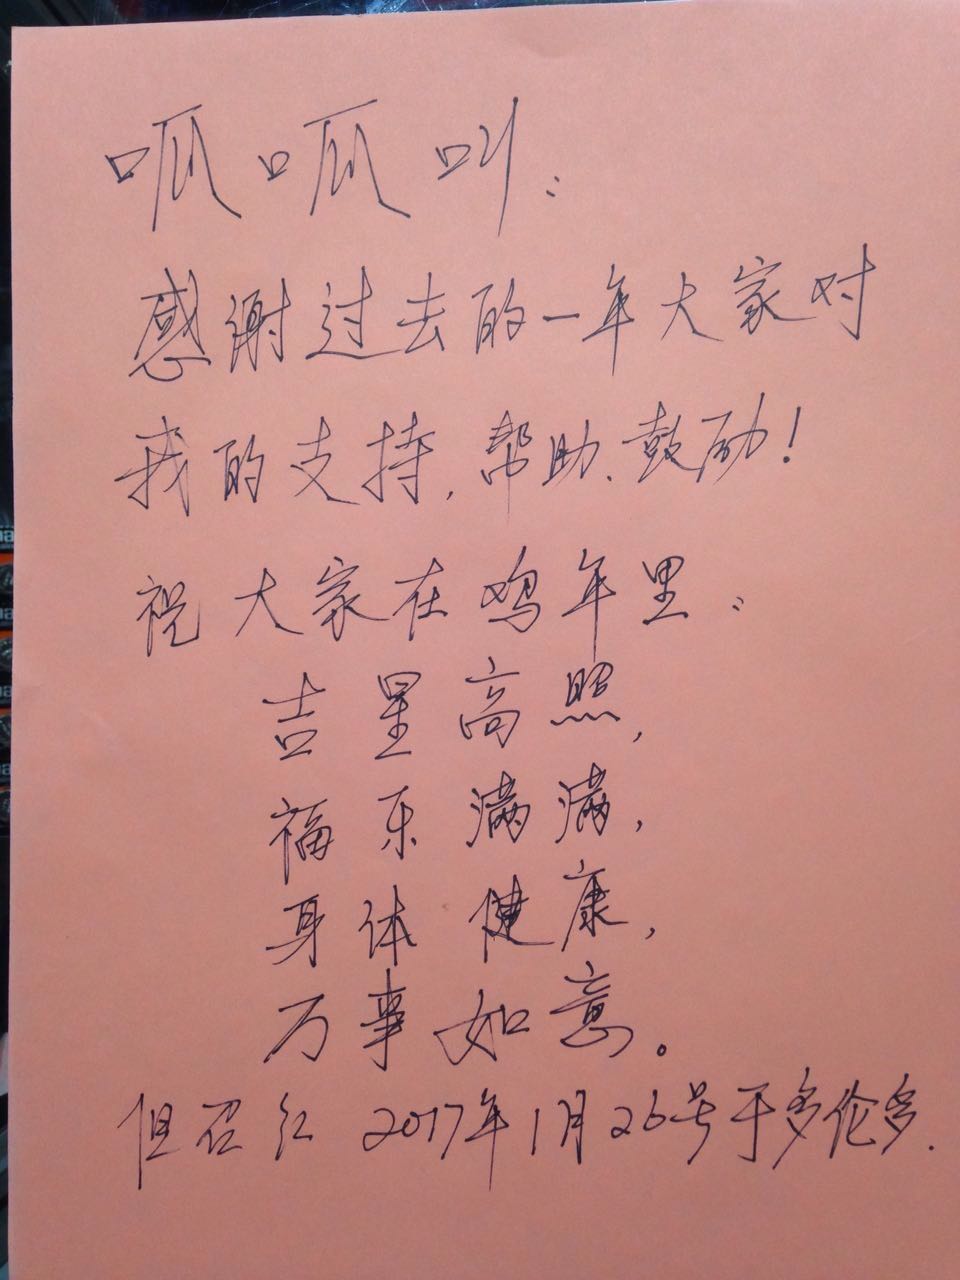 呱呱叫：
感谢过去的一年大家对
我的支持，帮助、鼓励！
祝大家在鸡年里：
吉星高照，
福乐满满，
身体健康，
万事如意。
但召红 2017年1月26号于多伦多.